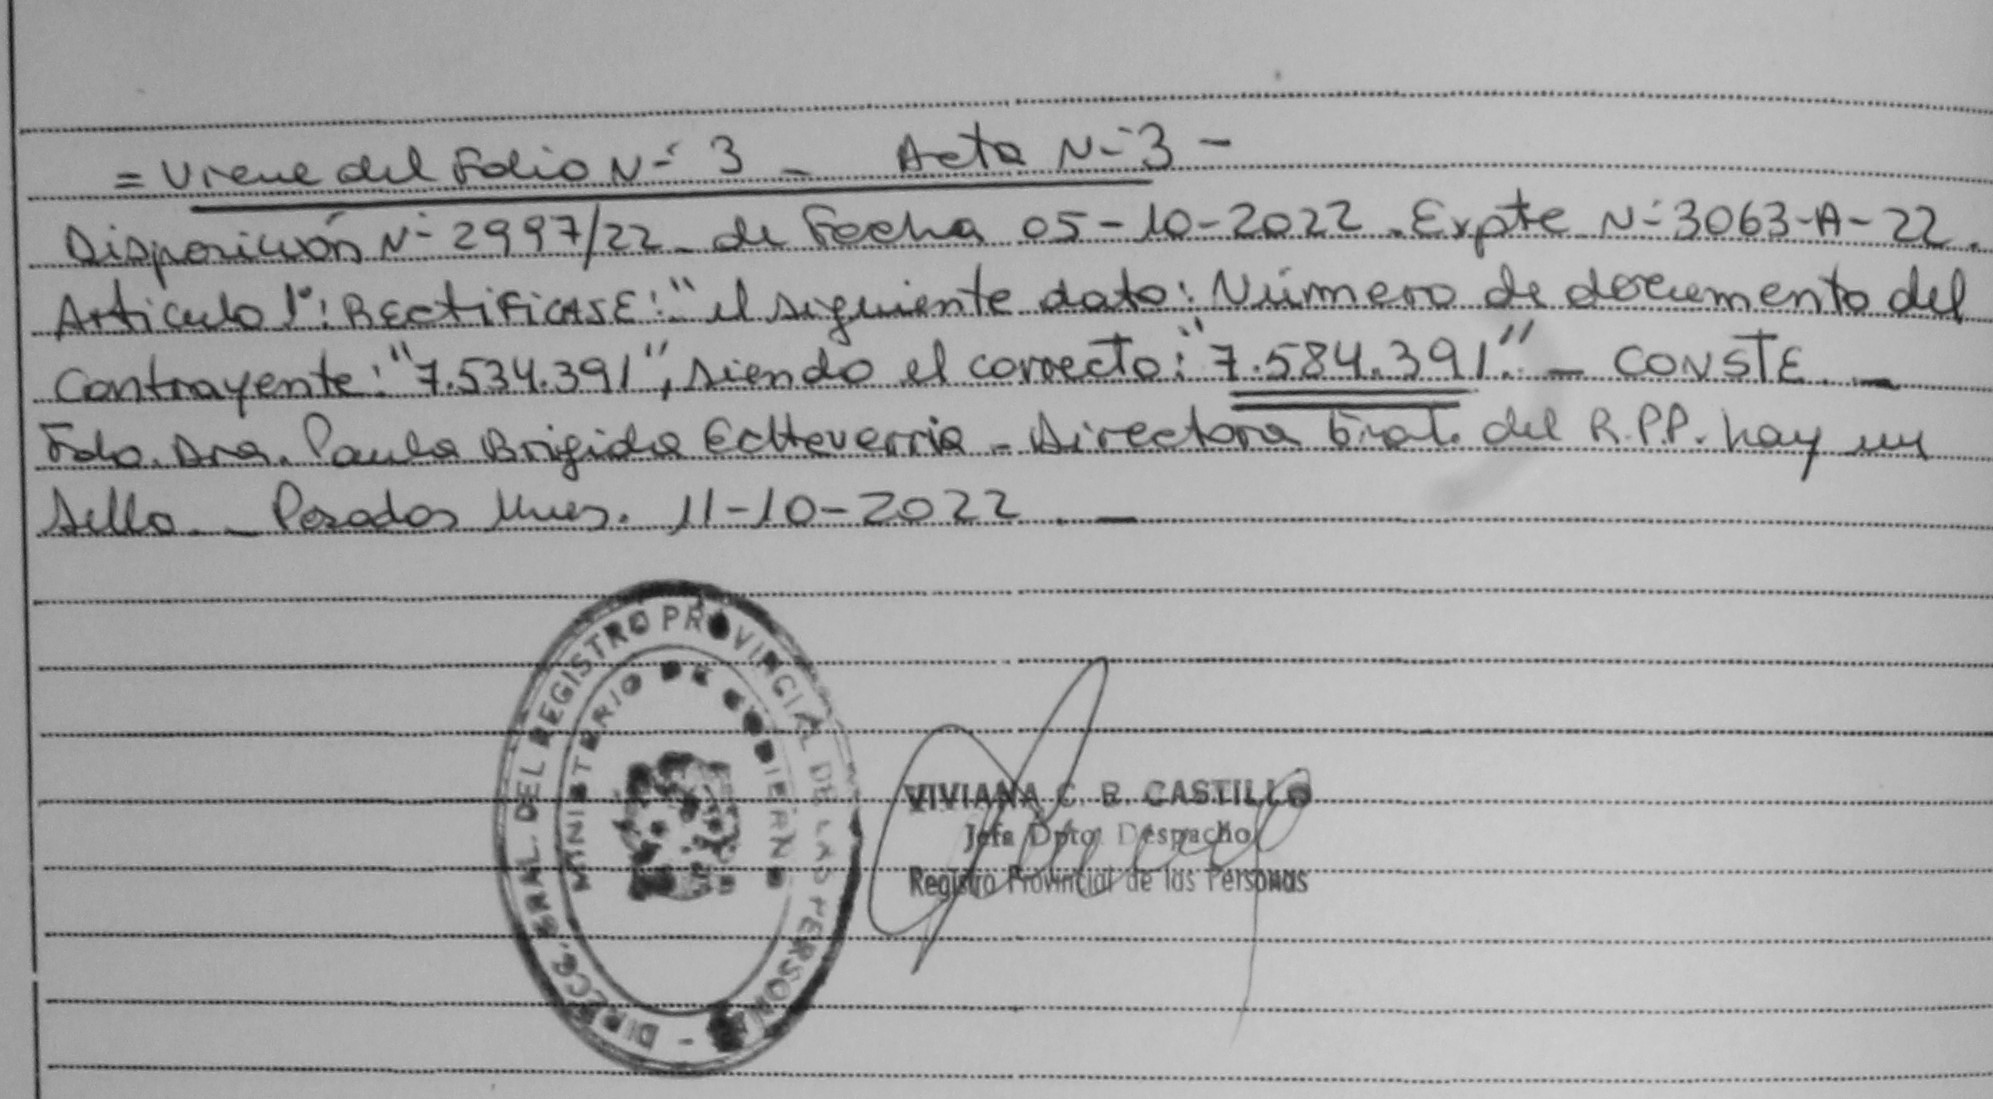 = Viene del Folio N° 3 - Acta N° 3 -
Disposición N° 2997/22 - de Fecha 05-10-2022. Expte N° 3063-A-22.
Artículo 1°: RECTIFICASE: "el siguiente dato: Número de documento del
Contrayente: "7.534.391", siendo el correcto: "7.584.391". - CONSTE. -
Fdo. Dra. Paula Brigida Echeverria - Directora Gral. del R.P.P. hay un
sello. - Posadas Mnes. 11-10-2022. -
DIRECC. GRAL. DEL REGISTRO PROVINCIAL DE LAS PERSONAS -
MINISTERIO DE GOBIERNO
VIVIANA C. R. CASTILLO
Jefa Dpto. Despacho
Registro Provincial de las Personas